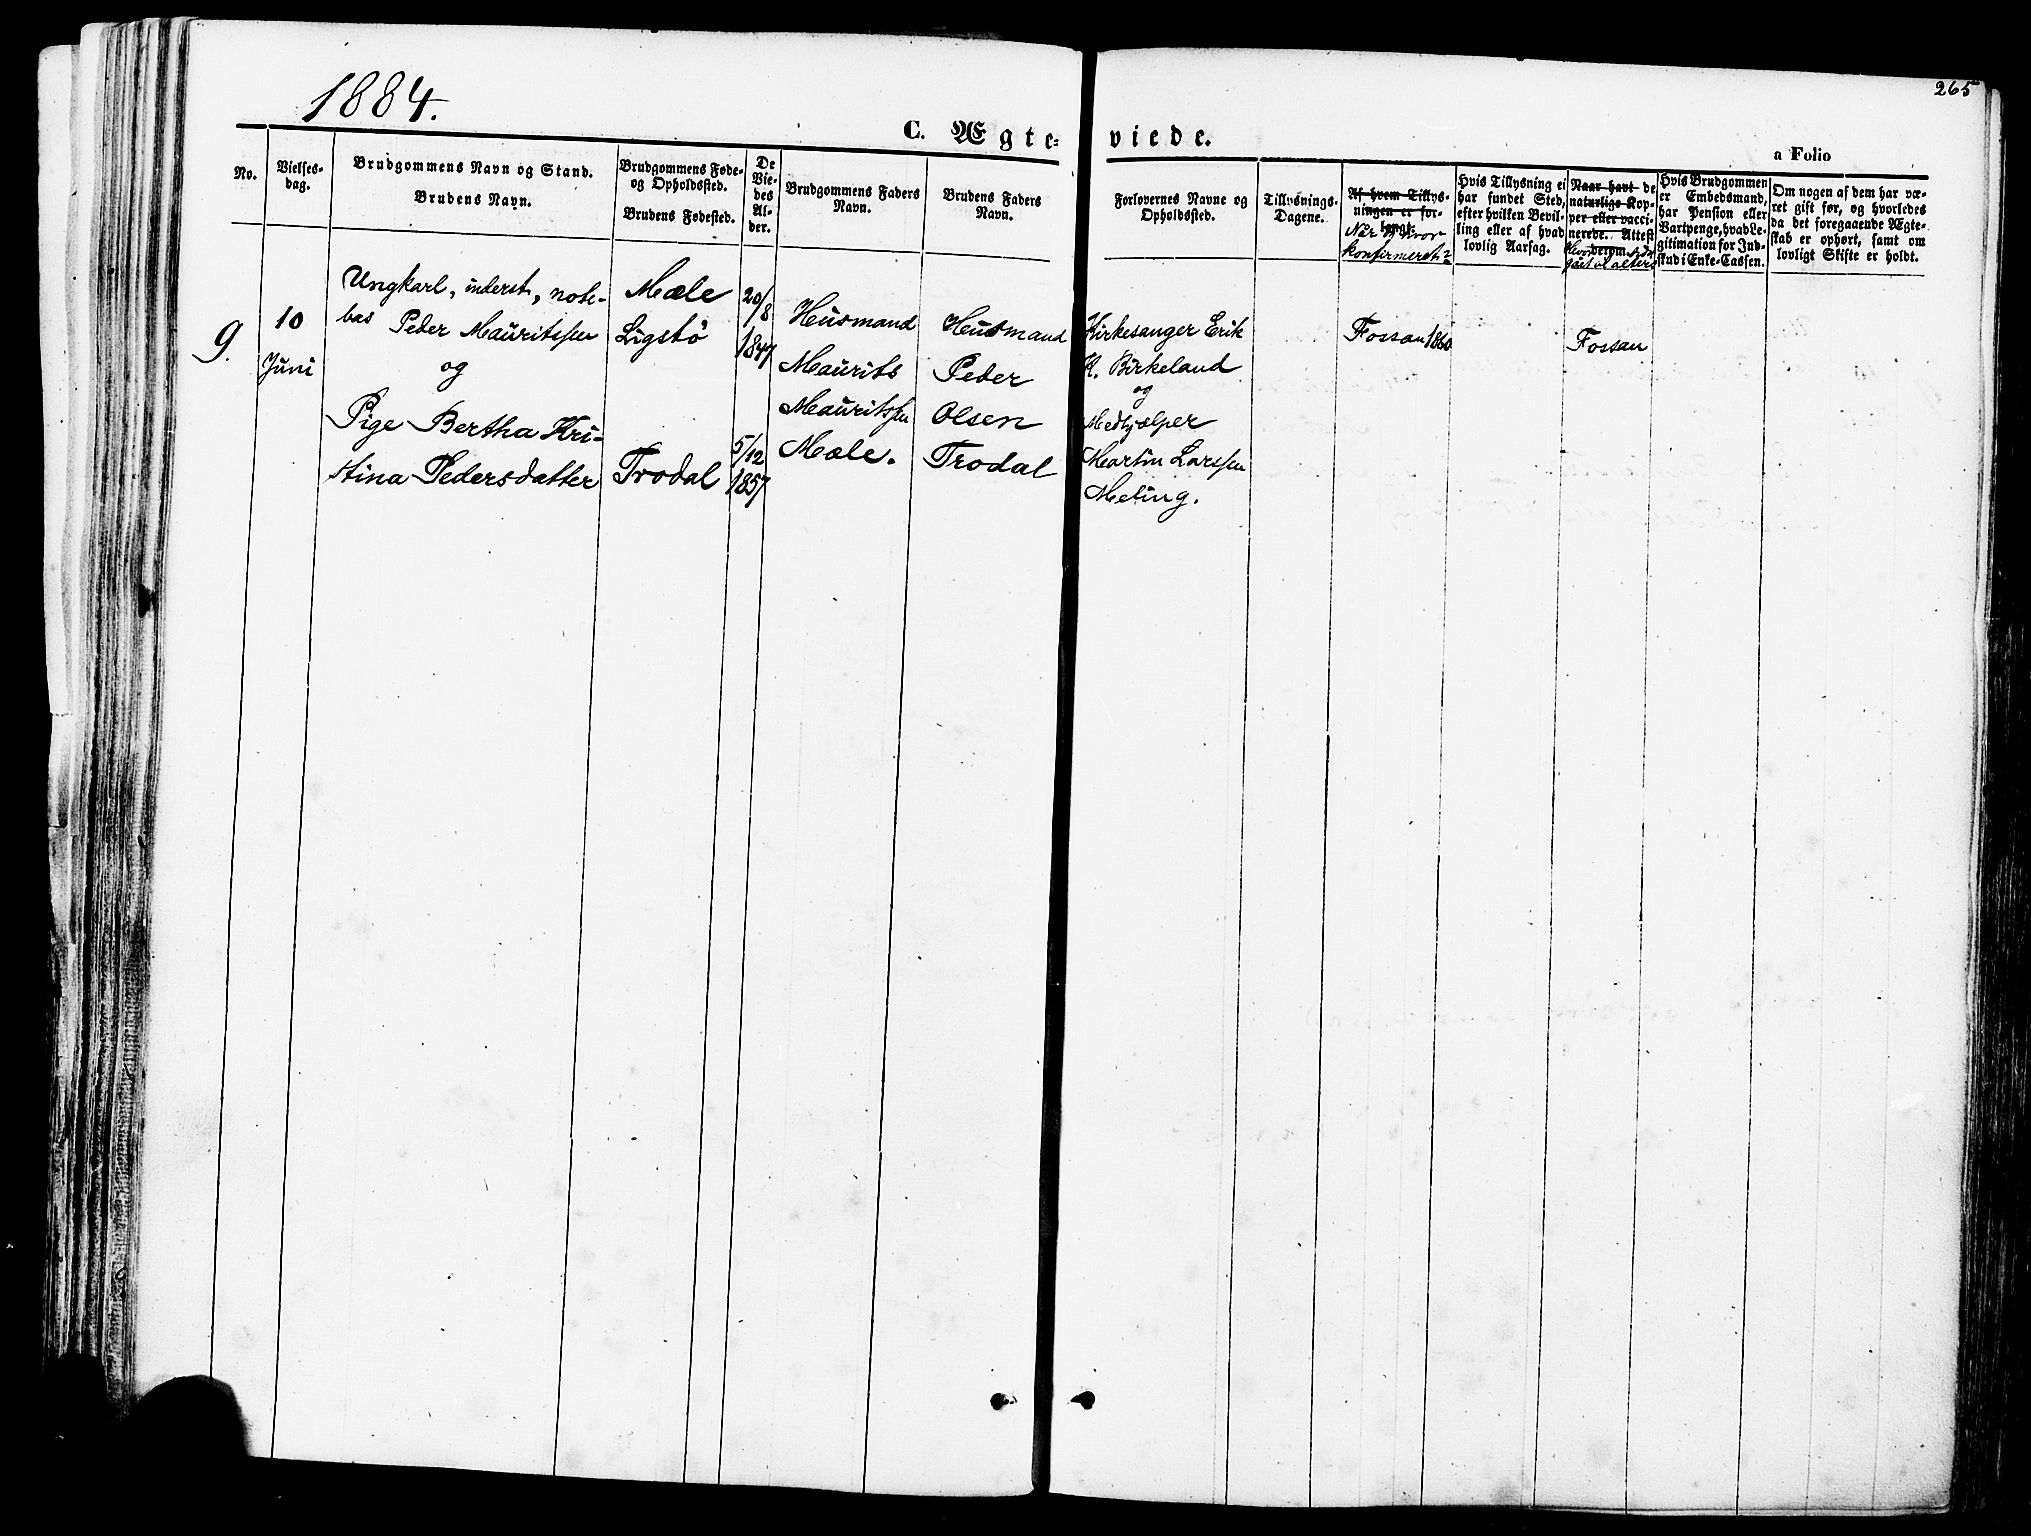 1884.
265
C. Ægte-
viede.
a Folio
No.
Vielses-
dag.
Brudgommens Navn og Stand.
Brudens Navn.
Brudgommens Føde-
og Opholdssted.
Brudens Fødested.
De
Vie-
des
Al-
der.
Brudgommens Faders
Navn.
Brudens Faders
Navn.
Forlovernes Navne og
Opholdssted.
Tillysnings-
Dagene.
Af hvem Tillys-
ningen er for-
langt.
Når og hvor
konfirmeret?
Hvis Tillysning ei
har fundet Sted,
efter hvilken Bevil-
ling eller af hvad
lovlig Aarsag.
Naar havt de
naturlige Kop-
per eller vacci-
nerede. Attest
derom.
gået til alters
Hvis Brudgommen
er Embedsmand,
har Pension eller
Vartpenge, hvad Le-
gitimation for Ind-
skud i Enke-Cassen.
Om nogen af dem har væ-
ret gift før, og hvorledes
da det foregaaende Ægte-
skab er ophørt, samt om
lovligt Skifte er holdt.
9.
10
Juni
Ungkarl, inderst, note-
bas Peder Mauritssen
og
Pige Bertha Kri-
stina Pedersdatter
Mæle
Ligstø
Trodal
20/8
1847
5/12
1857
Husmand
Maurits
Mauritssen
Mæle.
Husmand
Peder
Olsen
Trodal
Kirkesanger Erik
K. Birkeland
og
Medhjælper
Martin Larssen
Meling.
Fossan 1860
Fossan